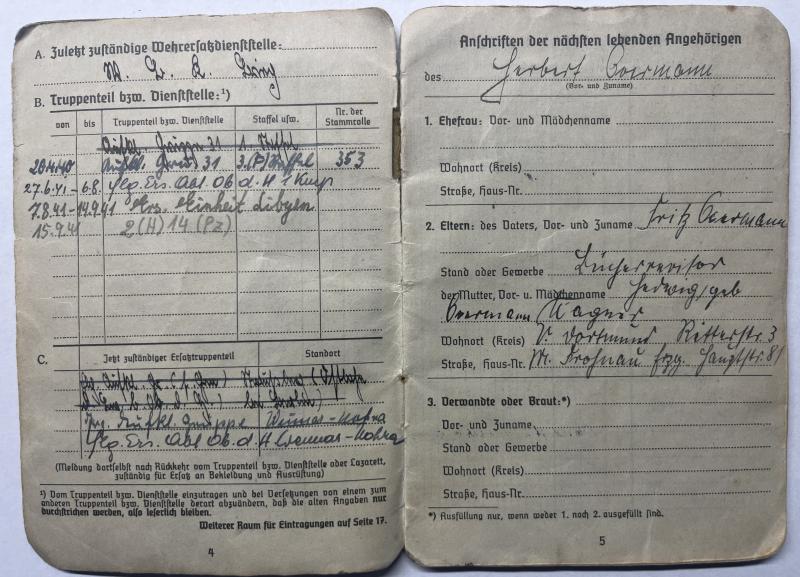 A. Zuletzt zuständige Wehrersatzdienststelle:
W. B. K.
B. Truppenteil bzw. Dienststelle:¹)
von bis Truppenteil bzw. Dienststelle Staffel usw. Nr. der Stammrolle
Aufkl. Gruppe 31 1. Staffel
20.4.40 Aufkl. Gru. 31 3.(F) Staffel 353
27.6.41-6.8. Flg. Ers. Abt. Ob. d. H 1 Komp
7.8.41-14.9.41 Ers. Einheit Libyen
15.9.41 2(H)14(Pz)
C. Jetzt zuständiger Ersatztruppenteil Standort
Erg. Aufkl. Gruppe Weimar-Nohra
Flg. Ers. Abt. Ob. d. H Weimar-Nohra
(Meldung dortselbst nach Rückkehr vom Truppenteil bzw. Dienststelle oder Lazarett,
zuständig für Ersatz an Bekleidung und Ausrüstung)
¹) Vom Truppenteil bzw. Dienststelle einzutragen und bei Versetzungen von einem zum
anderen Truppenteil bzw. Dienststelle derart abzuändern, daß die alten Angaben nur
durchstrichen werden, also leserlich bleiben.
Weiterer Raum für Eintragungen auf Seite 17.
4
Anschriften der nächsten lebenden Angehörigen
des Herbert Overmann
(Vor- und Zuname)
1. Ehefrau: Vor- und Mädchenname
Wohnort (Kreis)
Straße, Haus-Nr.
2. Eltern: des Vaters, Vor- und Zuname Fritz Overmann
Stand oder Gewerbe Bücherrevisor
der Mutter, Vor- u. Mädchenname Hedwig, geb
Overmann Wagner
Wohnort (Kreis) V. Dortmund Ritterstr. 3
Straße, Haus-Nr. M. Frohnau Hauptstr. 81
3. Verwandte oder Braut:*)
Vor- und Zuname
Stand oder Gewerbe
Wohnort (Kreis)
Straße, Haus-Nr.
*) Ausfüllung nur, wenn weder 1. noch 2. ausgefüllt sind.
5